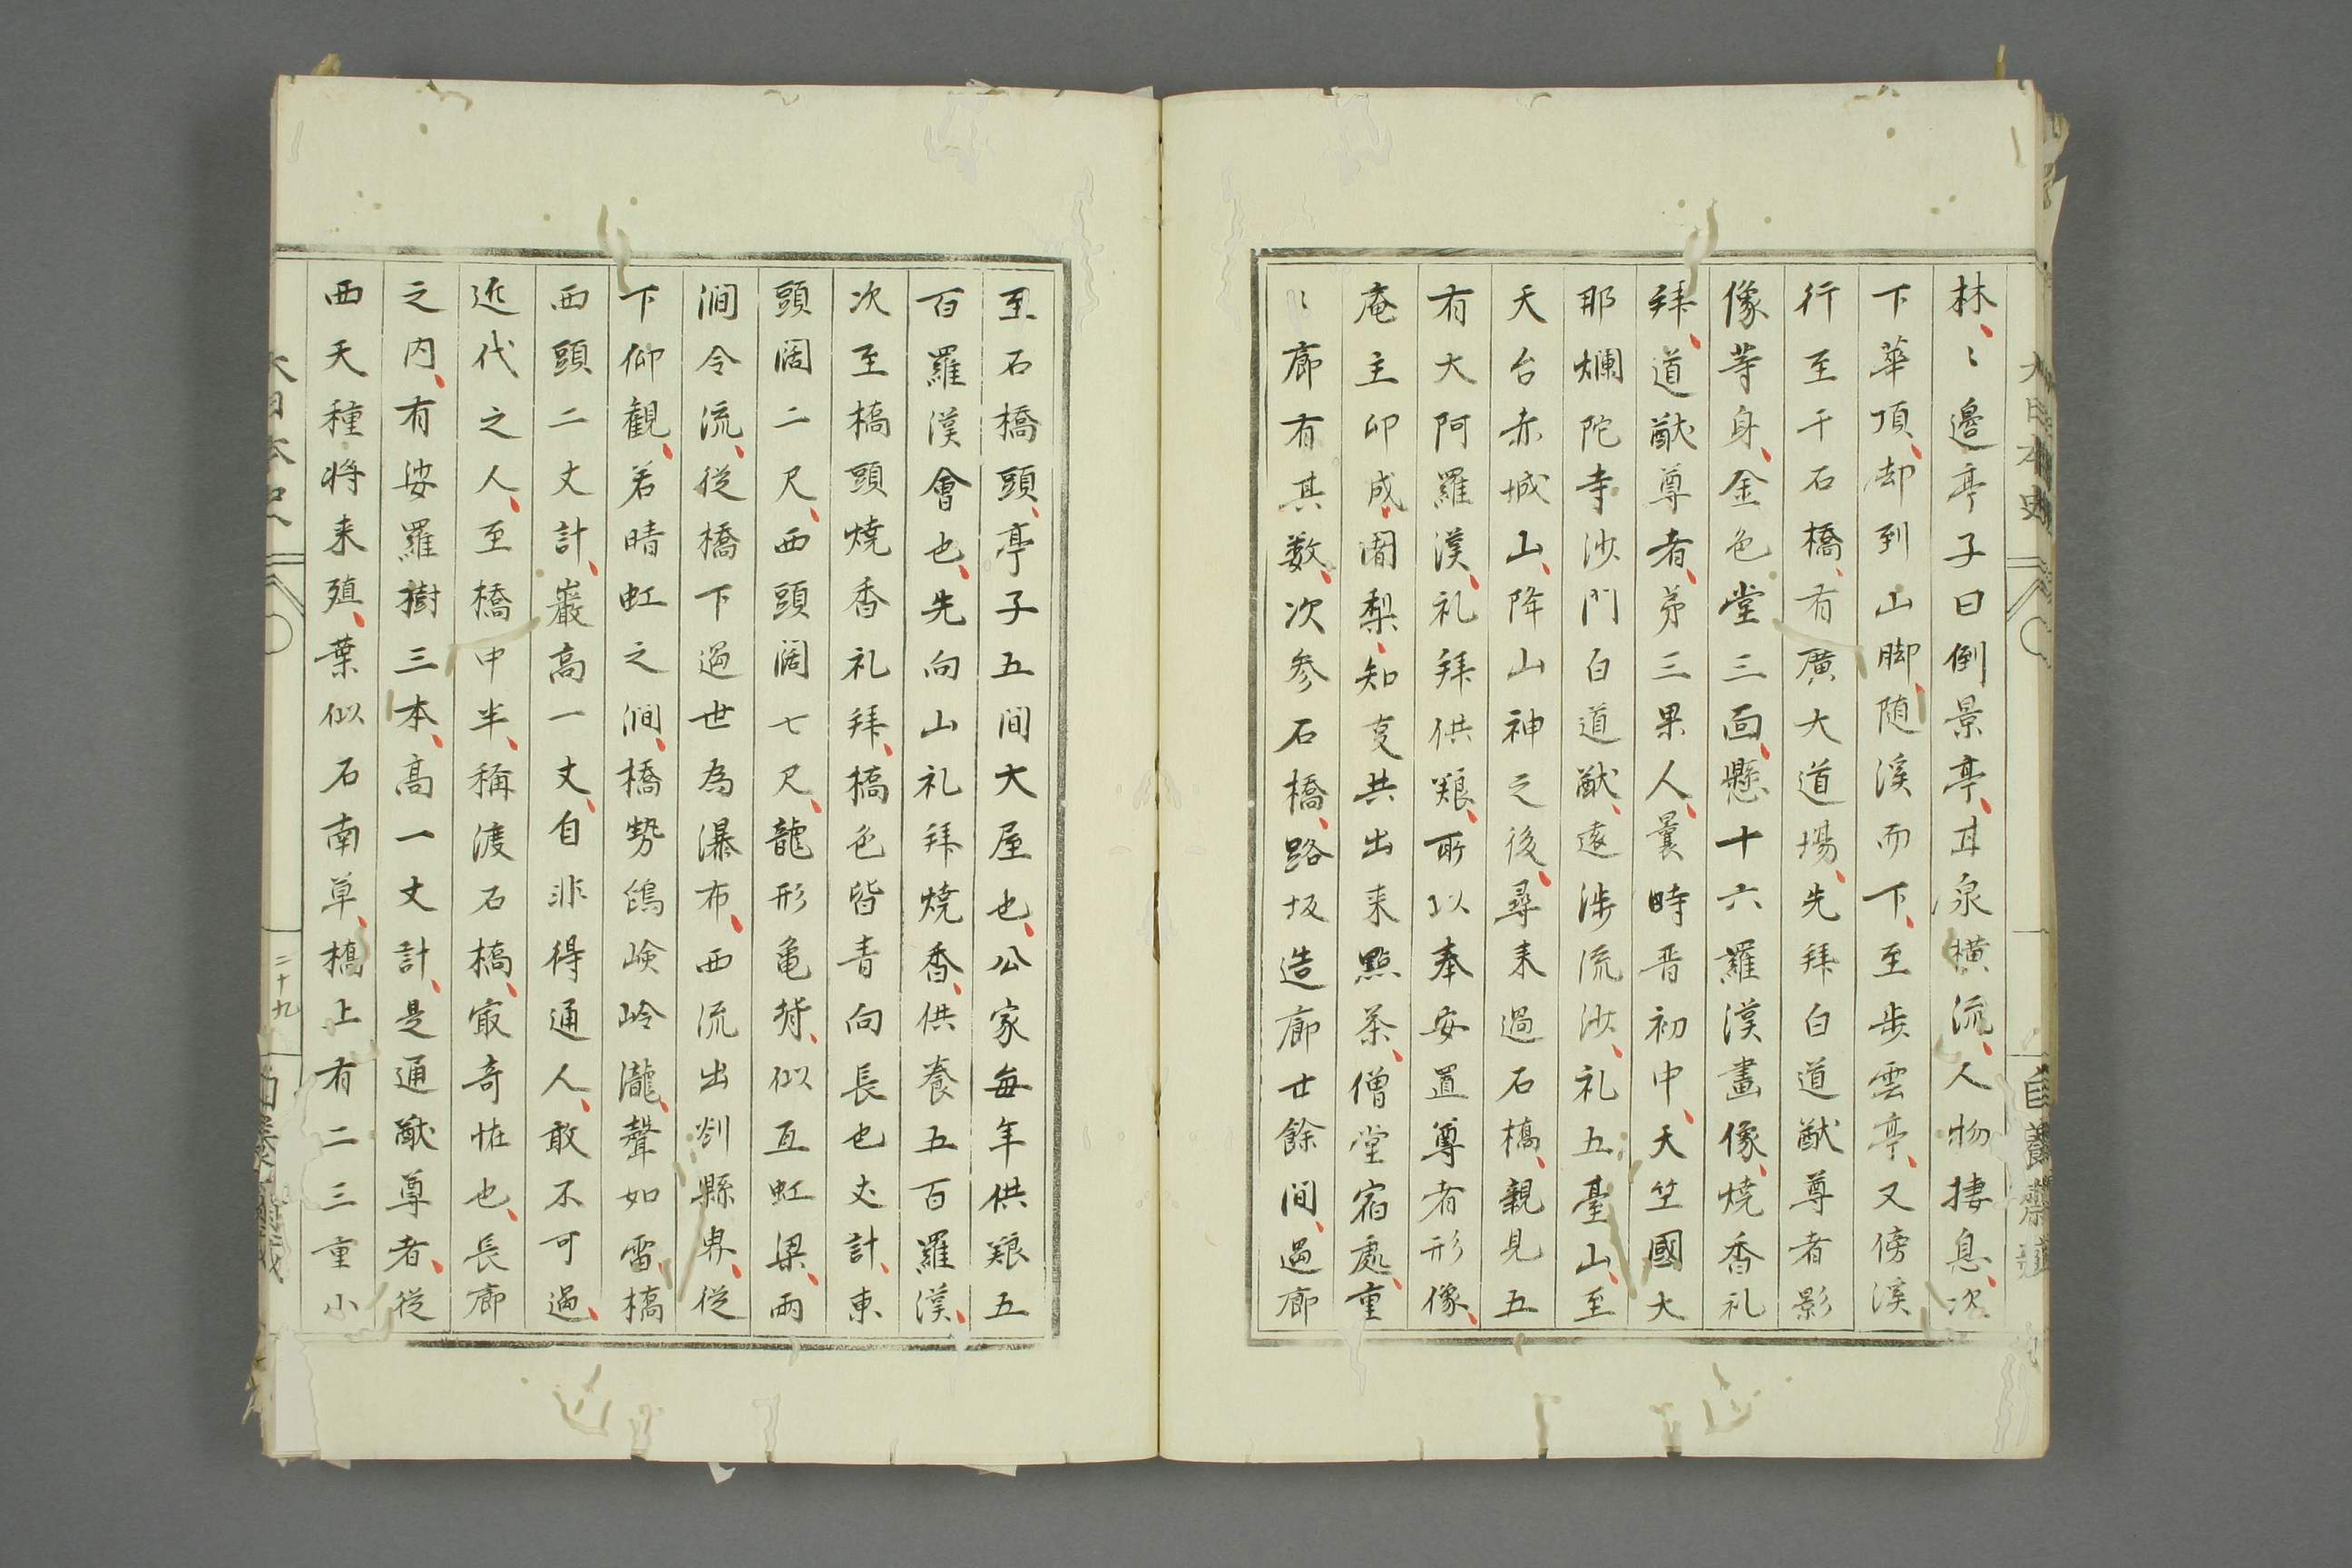 林、〻邊亭子曰倒景亭、井泉橫流、人物捿息、次
下華頂、却到山脚、随溪而下、至步雲亭、又傍溪
行至千石橋、有廣大道場、先拜白道猷尊者影
像等身、金色堂三面、懸十六羅漢畫像、燒香礼
拜、道猷尊者、弟三果人、曩時晋初中、天竺國大
那爛陀寺沙門白道猷、遠涉流沙、礼五臺山、至
天台赤城山、降山神之後、尋来過石橋、親見五
百大阿羅漢、礼拜供糧、所以奉安置尊者形像、
庵主印成闍梨、知叓共出来點茶、僧堂宿處、重
〻廊有其数、次参石橋、路坂造廊廿餘間、過廊
至石橋頭、亭子五間大屋也、公家每年供糧五
百羅漢會也、先向山礼拜燒香、供養五百羅漢、
次至橋頭燒香礼拜、橋色皆青向長七丈計、東
頭闊二尺、西頭闊七尺、龍形亀背、似亙虹梁、兩
澗合流、從橋下過世為瀑布、西流出剡縣界、從
下仰觀、若晴虹之澗、橋勢崢嶮岭瀧、聲如雷、橋
西頭二丈計、巖高一丈、自非得通人、敢不可過、
近代之人、至橋中半、稱渡石橋、㝡奇恠也、長廊
之内、有娑羅樹三本、高一丈計、是通猷尊者、從
西天種将来殖、葉似石南草、橋上有二三重小
大日本史
二十九